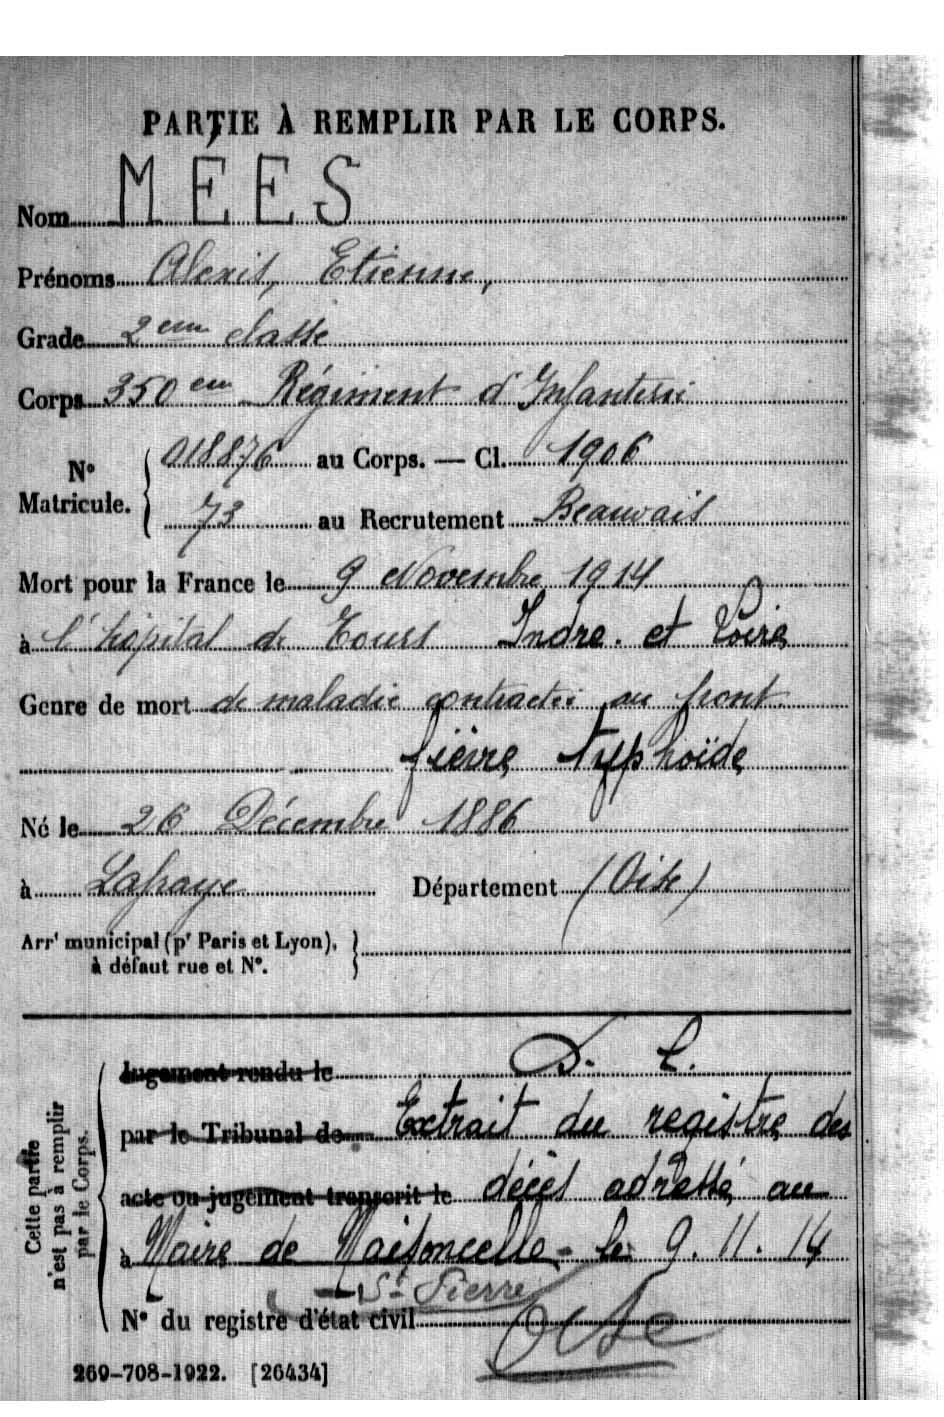 PARTIE À REMPLIR PAR LE CORPS.
Nom MÉES
Prénoms Alexis, Etienne,
Grade 2eme classe
Corps 350eme Régiment d'Infanterie
N° Matricule. 018876 au Corps. — Cl. 1906
73 au Recrutement Beauvais
Mort pour la France le 9 Novembre 1914
à l'hôpital de Tours Indre. et Loire
Genre de mort de maladie contractée au front
fièvre typhoïde
Né le 26 Décembre 1886
à Lafraye Département (Oise)
Arrt municipal (pr Paris et Lyon),
à défaut rue et N°.
Cette partie
n'est pas à remplir
par le Corps.
Jugement rendu le D. L.
par le Tribunal de Extrait du registre des
acte ou jugement transcrit le décès adressé au
à Maire de Maisoncelle - le 9. 11. 14
St Pierre
N° du registre d'état civil Oise
269-708-1922. [26434]